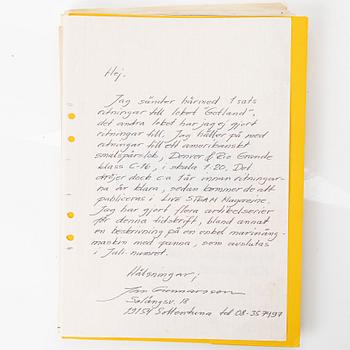 Hej.
Jag sänder härmed 1 sats
ritningar till loket "Gotland".
det andra loket har jag ej gjort
ritningar till. Jag håller på med
ritningar till ett amerikanskt
smalspårslok, Denver & Rio Grande
klass C-16, i skala 1:20. Det
dröjer dock ca 1 år innan ritningar-
na är klara, sedan kommer de att
publiceras i LIVE STEAM Magazine.
Jag har gjort flera artikelserier
för denna tidskrift, bland annat
en beskrivning på en enkel marinång-
maskin med panna, som avslutas
i Juli-numret.
Hälsningar;
Gunnarsson
18
19154 Sollentuna tel 08-357497